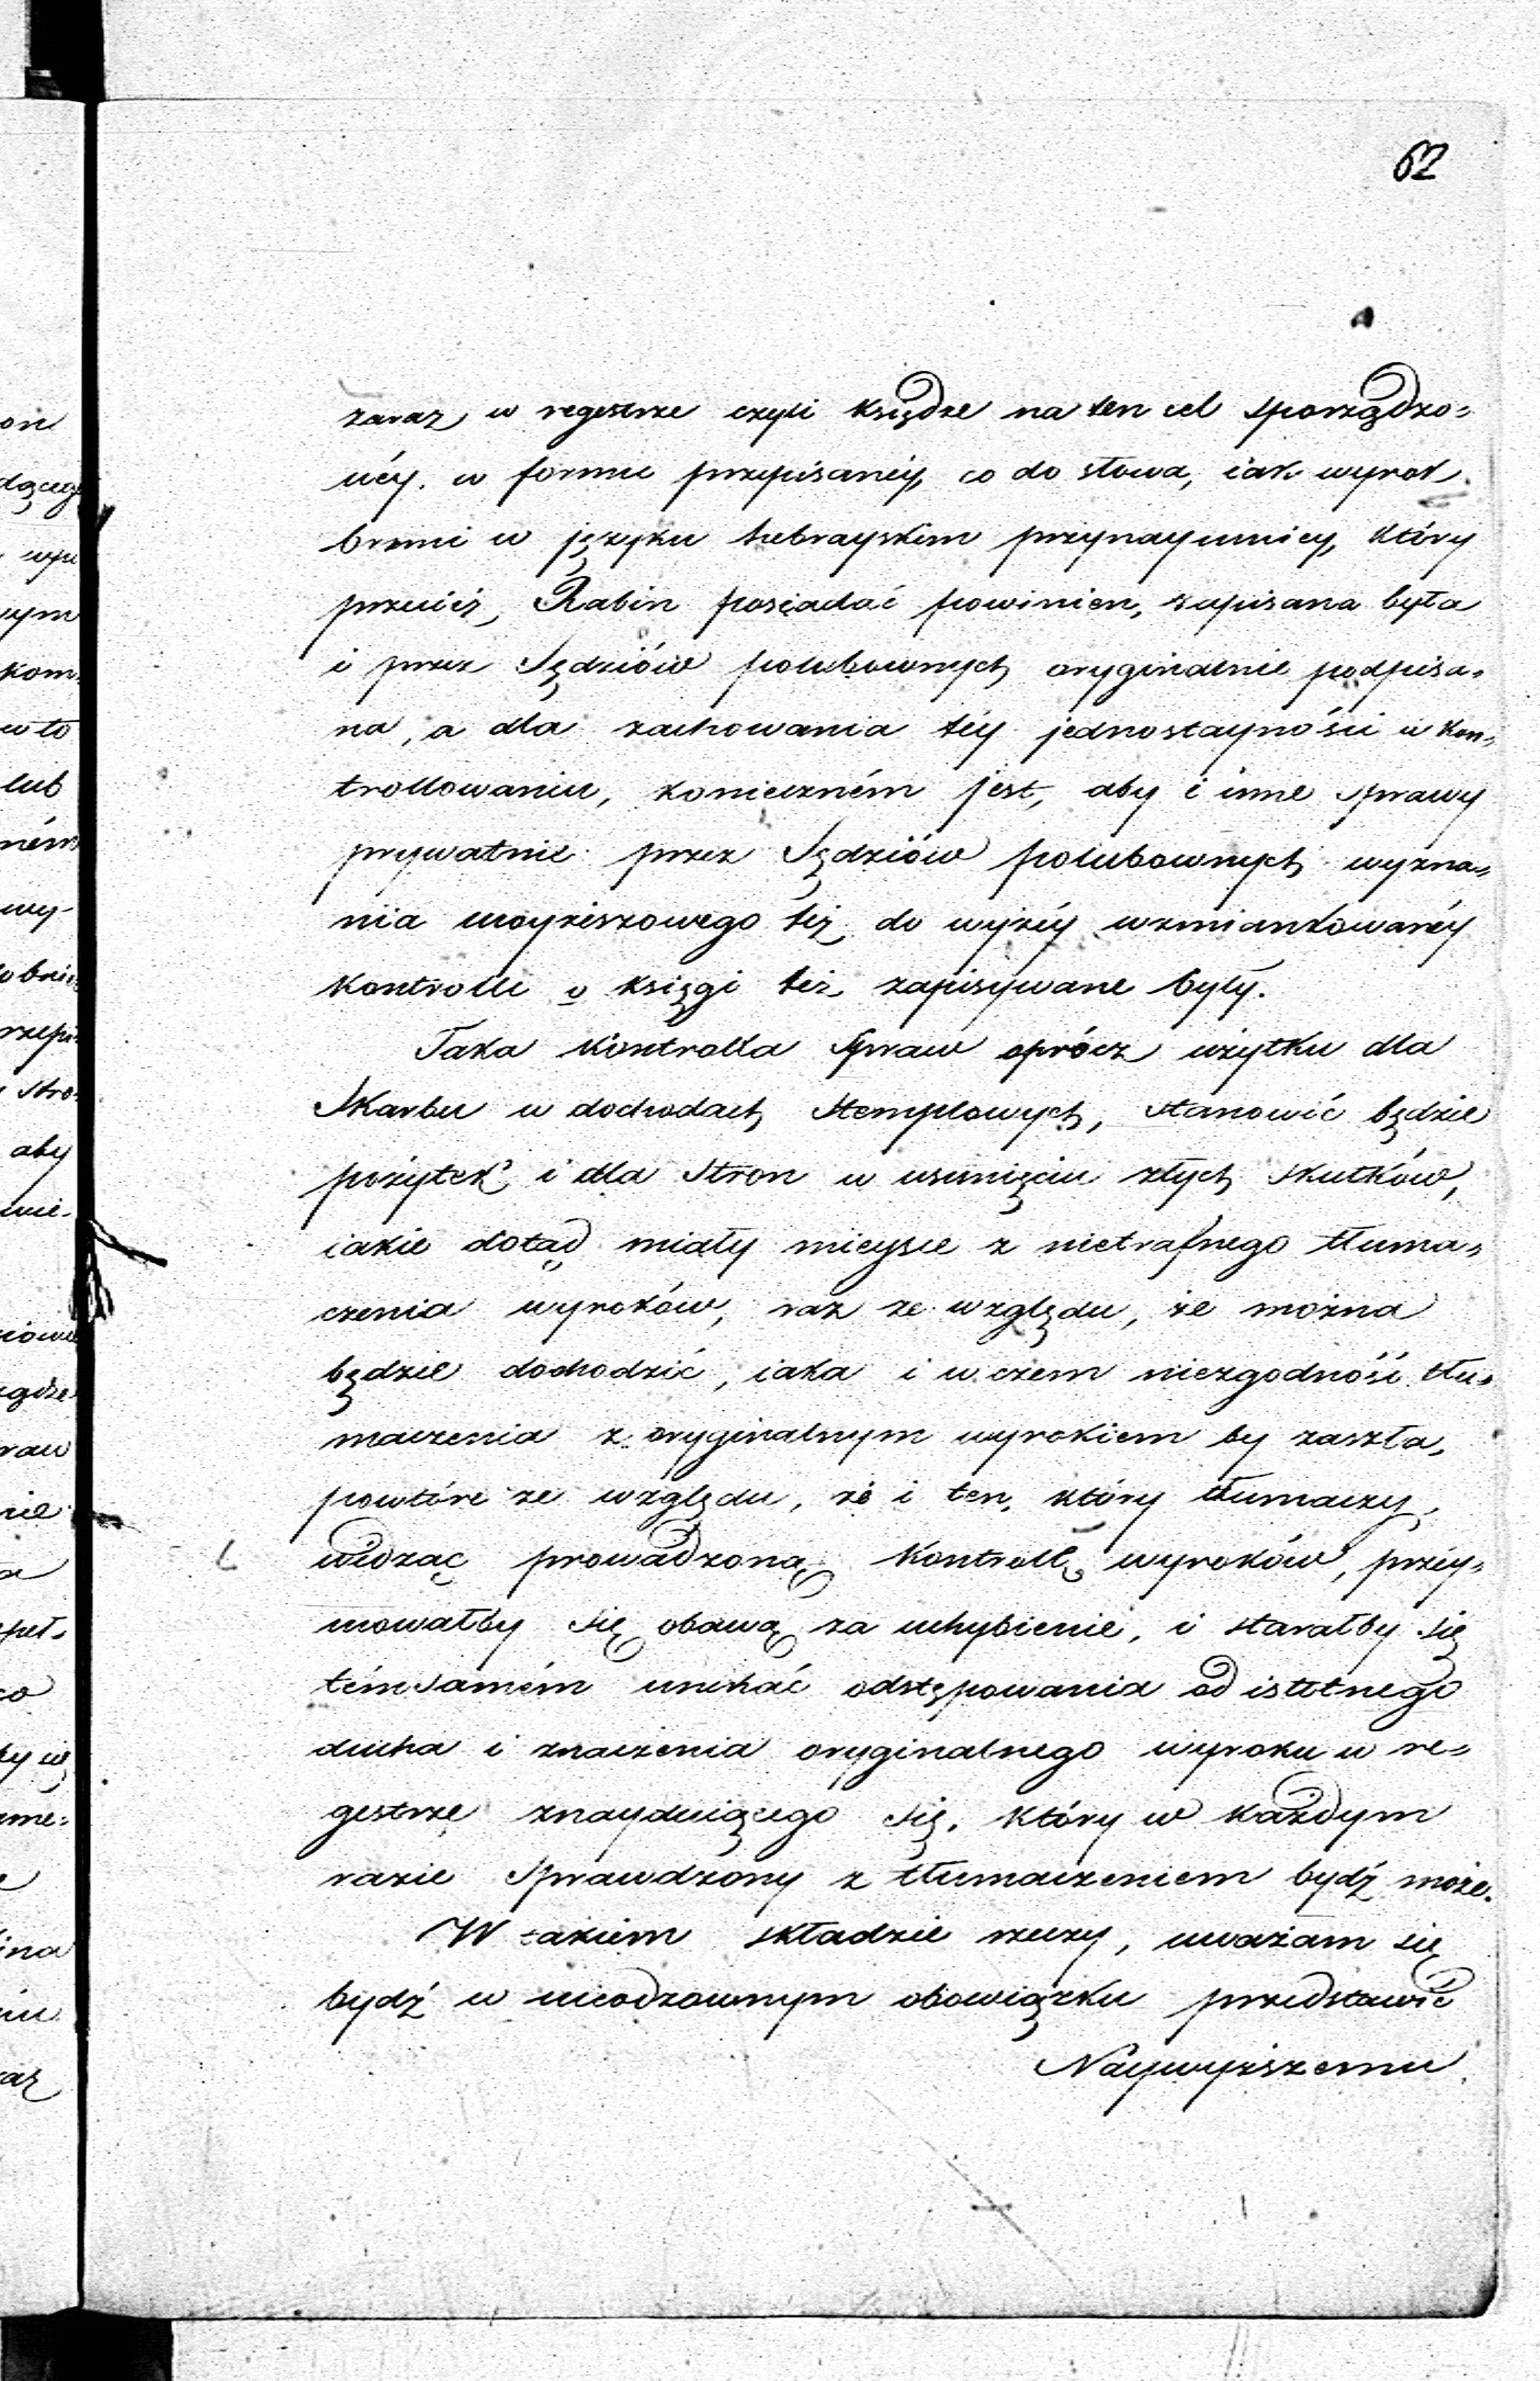 62
zaraz w regestrze czyli księdze na ten cel sporządzo=
néy. w formie przepisanéy, co do słowa, iak wyrok
brzmi w języku hebrayskim przynaymniey, który
przecież, Rabin posiadać powinien, zapisana była
i przez Sędziów polubownych oryginalnie podpisa=
na, a dla zachowania téy jednostayności w kon=
trollowaniu, konieczném jest, aby i inne sprawy
prywatnie przez Sędziów polubownych wyzna=
nia moyżeszowego też do wyżéy wzmiankowanéy
kontrolli i księgi też zapisywane były.
Taka Kontrolla Spraw oprócz użytku dla
Skarbu w dochodach Stemplowych, stanowić będzie
pożytek i dla Stron w usunięciu złych skutków,
iakie dotąd miały mieysce z nietrafnego tłuma=
czenia wyroków, raz ze względu, że można
będzie dochodzić, iaka i w czem niezgodność tłu=
maczenia z oryginalnym wyrokiem by zaszła,
powtóre ze względu, że i ten, który tłumaczy,
widząc prowadzoną Kontrollę wyroków, przéy=
mowałby się obawą za uchybienie, i starałby się
témsamém unikać odstępowania od istotnego
ducha i znaczenia oryginalnego wyroku w re=
gestrze znayduiącego się, który w każdym
razie Sprawdzony z tłumaczeniem bydź może.
W takiem składzie rzeczy, uważam się
bydź w nieodzownym obowiązku przedstawić
Naywyższemu